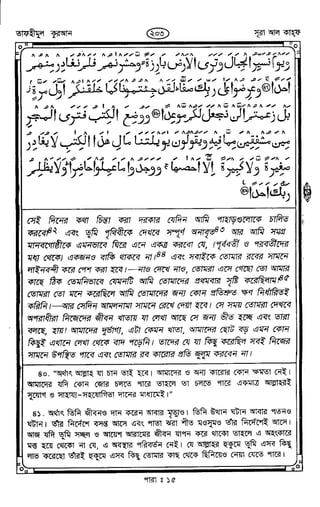 তাফহীমুল কুরআন ২০৩ সূরা আল কাহফ
وَيَوْمَ نُسَيِّرُ الْجِبَالَ وَتَرَى الْأَرْضَ بَارِزَةً وَّحَشَرْنٰهُمْ فَلَمْ نُغَادِرْ مِنْهُمْ
اَحَدًا ۝ وَعُرِضُوْا عَلٰى رَبِّكَ صَفًّا لَقَدْ جِئْتُمُوْنَا كَمَا خَلَقْنٰكُمْ اَوَّلَ مَرَّةٍ
بَلْ زَعَمْتُمْ اَلَّنْ نَّجْعَلَ لَكُمْ مَّوْعِدًا ۝ وَوُضِعَ الْكِتٰبُ فَتَرَى الْمُجْرِمِيْنَ
مُشْفِقِيْنَ مِمَّا فِيْهِ وَيَقُوْلُوْنَ يٰوَيْلَتَنَا مَالِ هٰذَا الْكِتٰبِ لَا يُغَادِرُ
صَغِيْرَةً وَّلَا كَبِيْرَةً اِلَّا اَحْصٰهَا وَوَجَدُوْا مَا عَمِلُوْا حَاضِرًا وَلَا يَظْلِمُ
رَبُّكَ اَحَدًا
সেই দিনের কথা চিন্তা করা দরকার যেদিন আমি পাহাড়গুলোকে চালিত
করবো এবং তুমি পৃথিবীকে দেখবে সম্পূর্ণ অনাবৃত আর আমি সমগ্র
মানবগোষ্ঠীকে এমনভাবে ঘিরে এনে একত্র করবো যে, (পূর্ববর্তী ও পরবর্তীদের
মধ্য থেকে) একজনও বাকি থাকবে না। এবং সবাইকে তোমার রবের সামনে
লাইনবন্দী করে পেশ করা হবে।—নাও দেখে নাও, তোমরা এসে গেছো তো আমার
কাছে ঠিক তেমনিভাবে যেমনটি আমি তোমাদের প্রথমবার সৃষ্টি করেছিলাম।
তোমরা তো মনে করেছিলে আমি তোমাদের জন্য কোন প্রতিশ্রুত ক্ষণ নির্ধারিতই
করিনি।—আর সেদিন আমলনামা সামনে রেখে দেয়া হবে। সে সময় তোমরা দেখবে
অপরাধীরা নিজেদের জীবন খাতায় যা লেখা আছে সে জন্য ভীত হচ্ছে এবং তারা
বলছে, হায়! আমাদের দুর্ভাগ্য, এটা কেমন খাতা, আমাদের ছোট বড় এমন কোন
কিছুই এখানে লেখা থেকে বাদ পড়েনি। তাদের যে যা কিছু করেছিল সবই নিজের
সামনে উপস্থিত পাবে এবং তোমার রব কারোর প্রতি জুলুম করবেন না।
৪০. "অর্থাৎ আল্লাহ যা চান তাই হবে। আমাদের ও অন্য কারোর কোন ক্ষমতা নেই।
আমাদের যদি কোন জোর চলতে পারে তাহলে তা চলতে পারে একমাত্র আল্লাহরই
সুযোগ ও সাহায্য-সহযোগিতা দানের মাধ্যমেই।"
৪১. অর্থাৎ তিনি জীবনও দান করেন আবার মৃত্যুও। তিনি উত্থান ঘটান আবার পতনও
ঘটান। তাঁর নির্দেশে বসন্ত আসে এবং পাতা ঝরা শীত মওসুমও তাঁর নির্দেশেই আসে।
আজ যদি তুমি সচ্ছল ও আয়েশ আরামের জীবন যাপন করে থাকো তাহলে এ অহংকারে
মত্ত হয়ে থেকো না যে, এ অবস্থার পরিবর্তন নেই। যে আল্লাহর হুকুমে তুমি এসব কিছু
লাভ করেছো তাঁরই হুকুমে এসব কিছু তোমার কাছ থেকে ছিনিয়েও নেয়া যেতে পারে।
পারা : ১৫